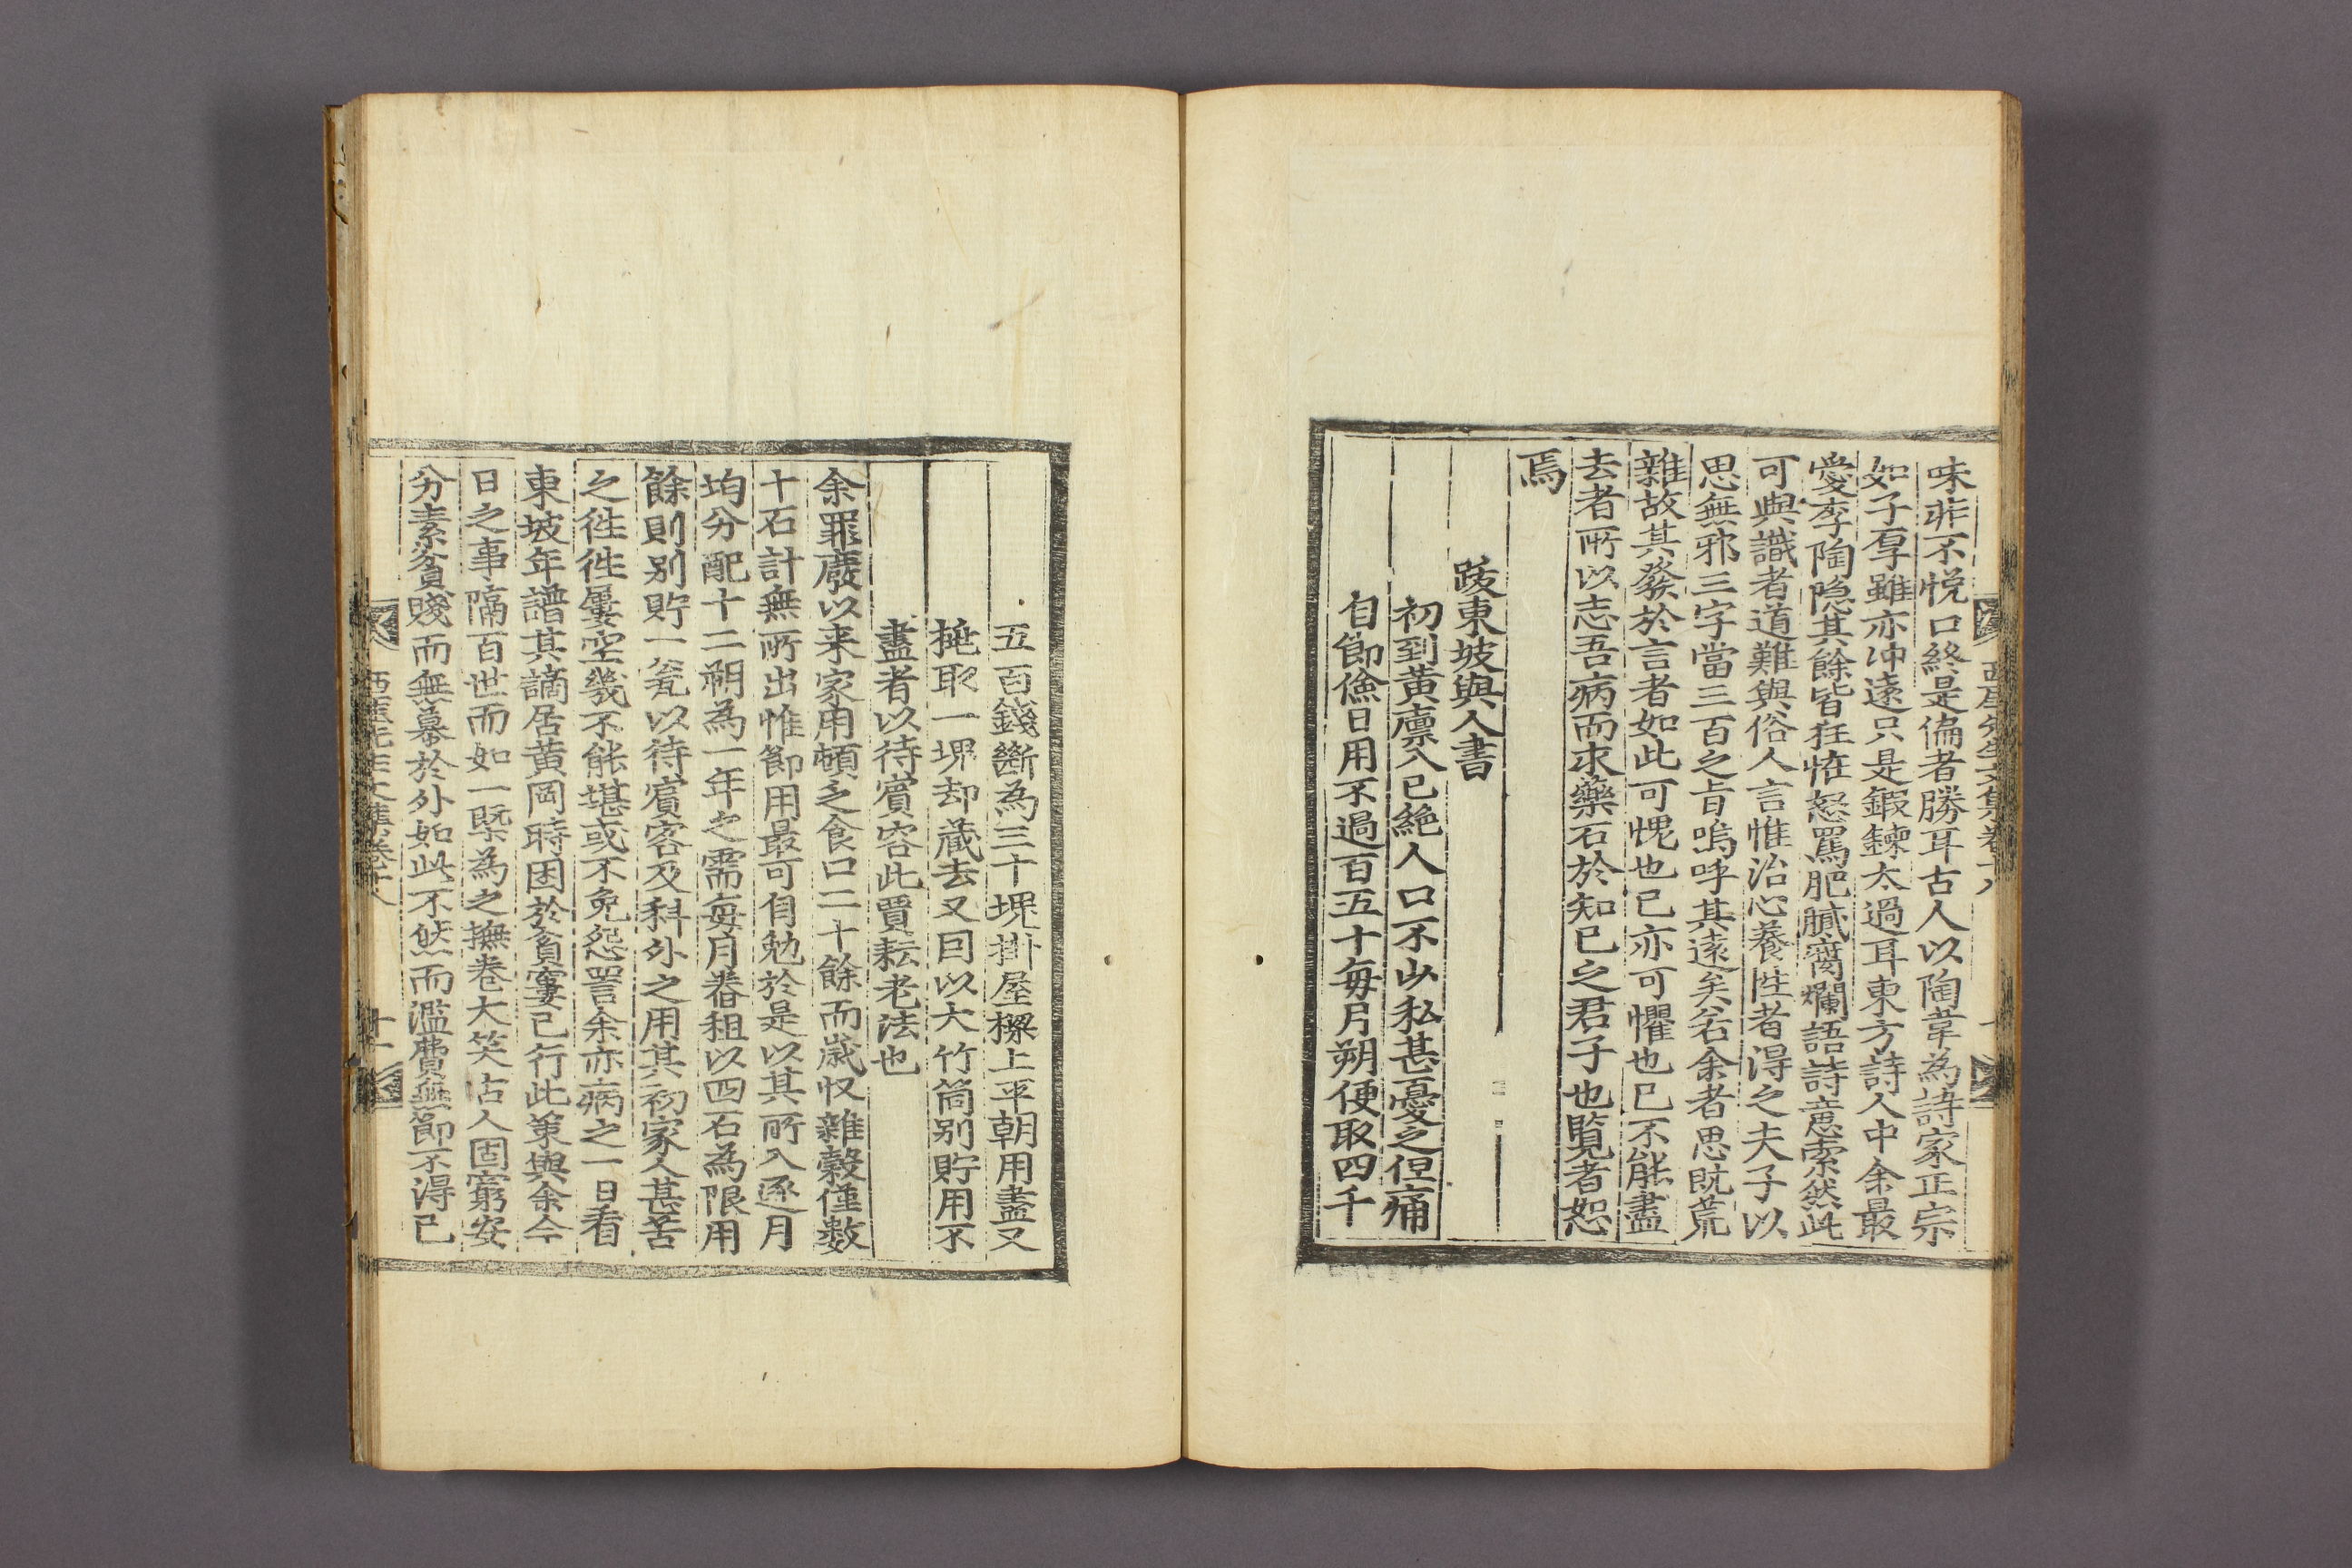 西厓先生文集卷十八
味非不悅口終是偏者勝耳古人以陶韋為詩家正宗
如子厚雖亦冲遠只是鍛鍊太過耳東方詩人中余最
愛李陶隐其餘皆狂恠怒罵肥膩腐爛語詩意索然此
可與識者道難與俗人言惟治心養性者得之夫子以
思無邪三字當三百之旨嗚呼其遠矣若余者思旣荒
雜故其發於言者如此可愧也已亦可懼也已不能盡
去者所以志吾病而求藥石於知己之君子也覧者恕
焉
跋東坡與人書
初到黃廪入已絶人口不少私甚憂之但痛
自節儉日用不過百五十每月朔便取四千
五百錢斷為三十塊掛屋樑上平朝用盡又
挑取一塊却藏去又曰以大竹筒别貯用不
盡者以待賓容此賈耘老法也
余罪廢以来家用頓乏食口二十餘而歲収雜穀僅數
十石計無所出惟節用最可自勉於是以其所入逐月
均分配十二朔為一年之需每月䊎租以四石為限用
餘則别貯一瓮以待賓客及科外之用其初家人甚苦
之徃徃屢空幾不能堪或不免怨詈余亦病之一日看
東坡年譜其謫居黄岡時困於貧窶已行此策與余今
日之事隔百世而如一旣為之撫卷大笑古人固窮安
分素貧賤而無慕於外如此不然而濫費無節不得已
西厓先生文集卷十八
十一